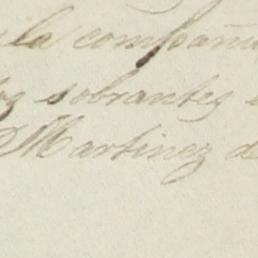 la compañia
sobrantes
Martinez de